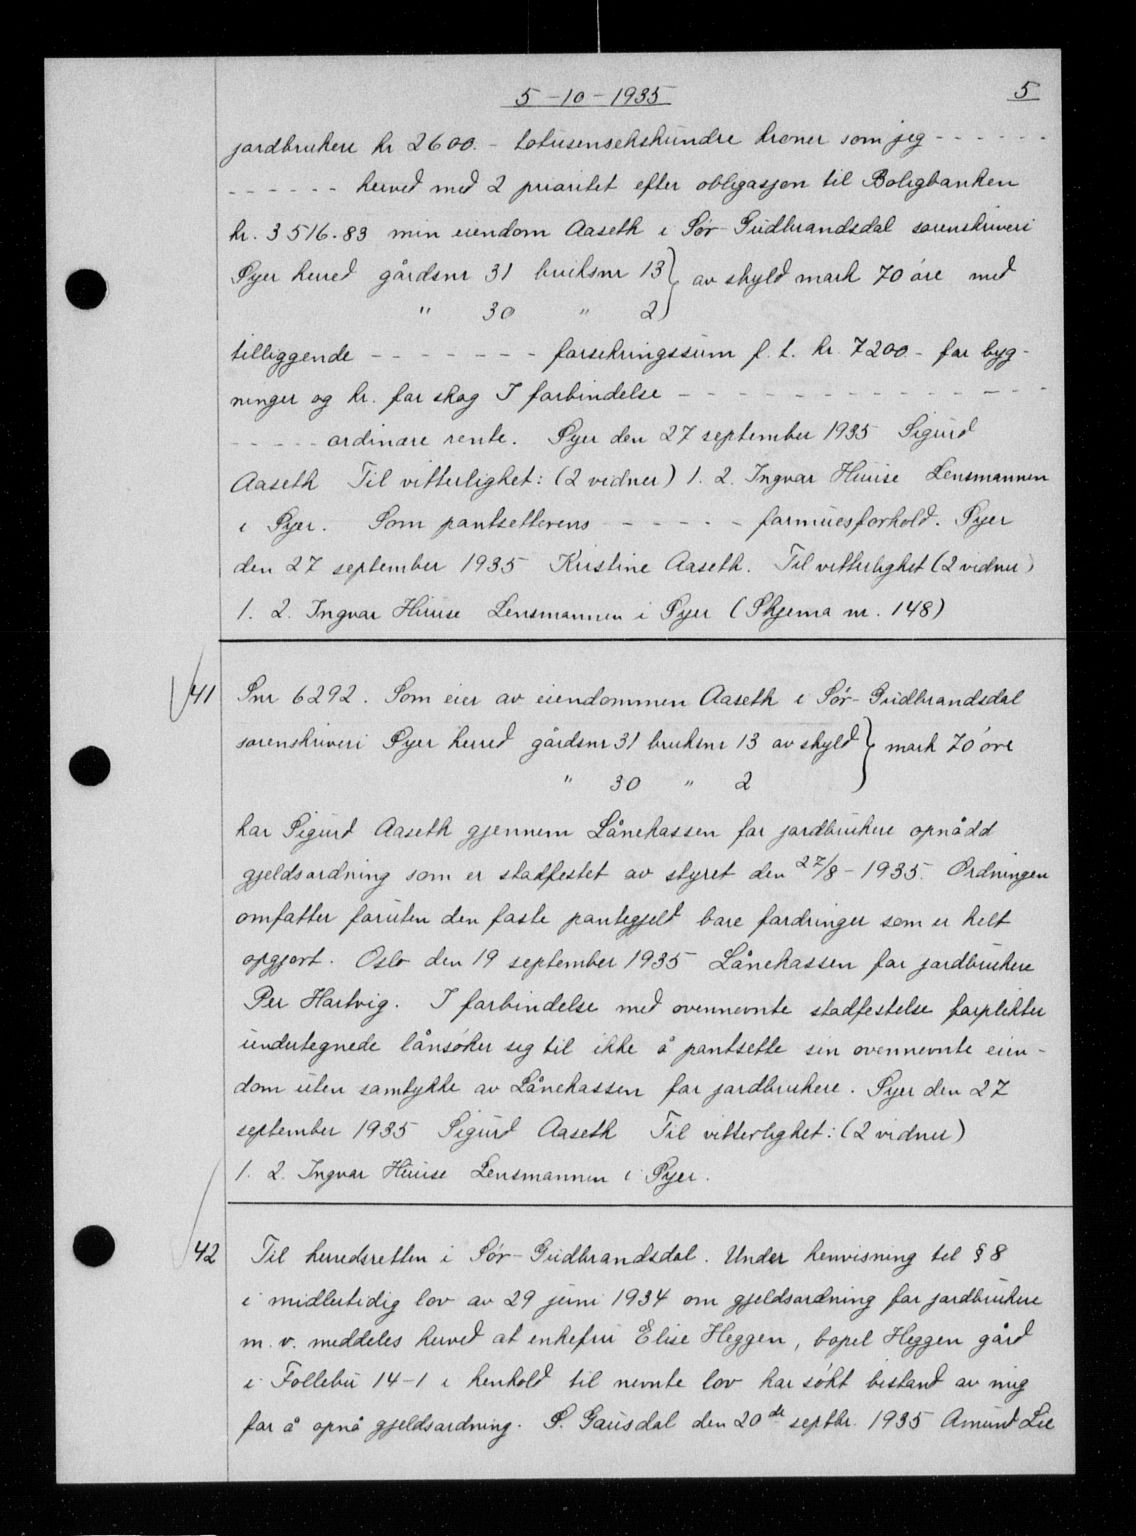 5-10-1935 5
jordbrukere kr 2600.- totusensekshundre kroner som jeg - - - - - -
- - - - - - herved med 2 prioritet efter obligasjon til Boligbanken
kr. 3516.83 min eiendom Aaseth i Sør-Gudbrandsdal sorenskriveri
Øyer herred gårdsnr 31 bruksnr 13 } av skyld mark 70 øre med
" 30 " 2 }
tilliggende - - - - - - - forsikringssum f. t. kr. 7200.- for byg-
ninger og kr. for skog I forbindelse - - - - - - - - - - - - - -
- - - - - ordinære rente. Øyer den 27 september 1935 Sigurd
Aaseth Til vitterlighet: (2 vidner) 1. 2. Ingvar Huuse Lensmannen
i Øyer. Som pantsetterens - - - - - - formuesforhold. Øyer
den 27 september 1935 Kristine Aaseth. Til vitterlighet (2 vidner)
1. 2. Ingvar Huuse Lensmannen i Øyer (Skjema nr. 148)
41 Snr 6292. Som eier av eiendommen Aaseth i Sør-Gudbrandsdal
sorenskriveri Øyer herred gårdsnr 31 bruksnr 13 av skyld } mark 70 øre
" 30 " 2 }
har Sigurd Aaseth gjennem Lånekassen for jordbrukere opnådd
gjeldsordning som er stadfestet av styret den 27/8-1935. Ordningen
omfatter foruten den faste pantegjeld bare fordringer som er helt
opgjort. Oslo den 19 september 1935 Lånekassen for jordbrukere
Per Hartvig. I forbindelse med ovennevnte stadfestelse forplikter
undertegnede lånsøker seg til ikke å pantsette sin ovennevnte eien-
dom uten samtykke av Lånekassen for jordbrukere. Øyer den 27
september 1935 Sigurd Aaseth Til vitterlighet: (2 vidner)
1. 2. Ingvar Huuse Lensmannen i Øyer.
42 Til herredsretten i Sør-Gudbrandsdal. Under henvisning til § 8
i midlertidig lov av 29 juni 1934 om gjeldsordning for jordbrukere
m. v. meddeles herved at enkefru Elise Heggen, bopel Heggen gård
i Follebu 14-1 i henhold til nevnte lov har søkt bistand av mig
for å opnå gjeldsordning. Ø. Gausdal den 20de septbr. 1935 Amund Lie